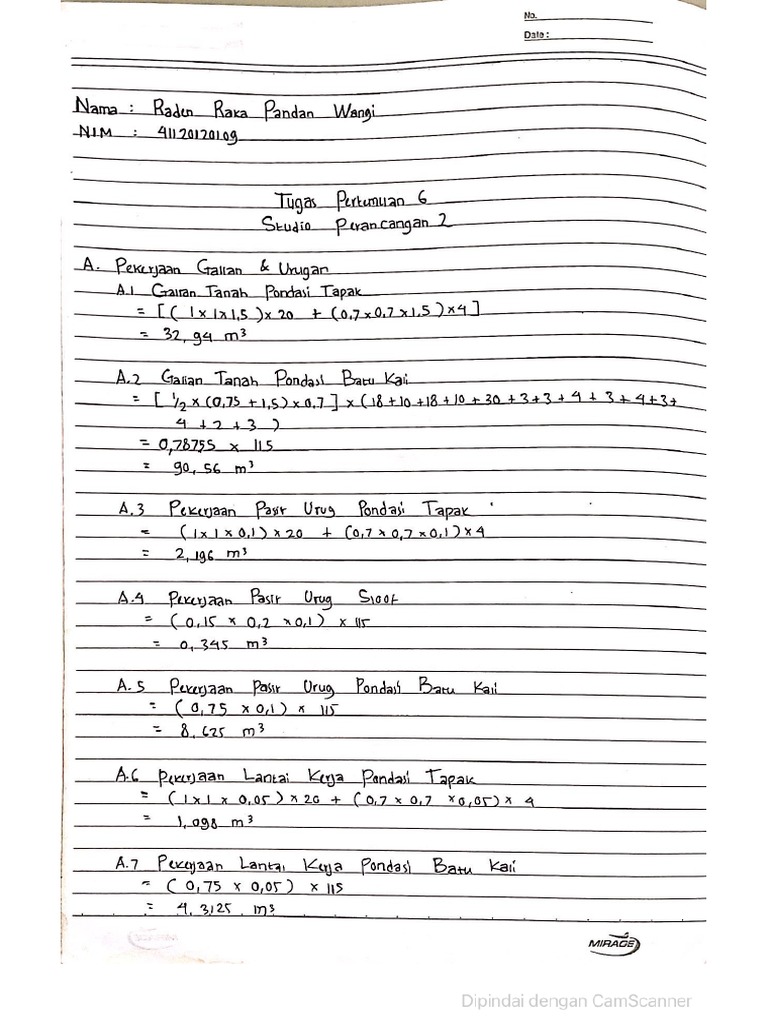 No.
Date :
Nama : Raden Raka Pandan Wangi
NIM : 41120120109
Tugas Pertemuan 6
Studio Perancangan 2
A. Pekerjaan Galian & Urugan
A.1 Galian Tanah Pondasi Tapak
= [ ( 1 x 1 x 1,5 ) x 20 + ( 0,7 x 0,7 x 1,5 ) x 4 ]
= 32,94 m³
A.2 Galian Tanah Pondasi Batu Kali
= [ ½ x (0,75 + 1,5) x 0,7 ] x (18+10+18+10+30+3+3+4+3+4+3+
4+2+3 )
= 0,78755 x 115
= 90,56 m³
A.3 Pekerjaan Pasir Urug Pondasi Tapak
= (1x1x0,1) x 20 + (0,7 x 0,7 x 0,1) x 4
= 2,196 m³
A.4 Pekerjaan Pasir Urug Sloof
= ( 0,15 x 0,2 x 0,1 ) x 115
= 0,345 m³
A.5 Pekerjaan Pasir Urug Pondasi Batu Kali
= ( 0,75 x 0,1 ) x 115
= 8,625 m³
A.6 Pekerjaan Lantai Kerja Pondasi Tapak
= ( 1 x 1 x 0,05 ) x 20 + ( 0,7 x 0,7 x 0,05 ) x 4
= 1,098 m³
A.7 Pekerjaan Lantai Kerja Pondasi Batu Kali
= ( 0,75 x 0,05 ) x 115
= 4,3125 m³
MIRAGE
Dipindai dengan CamScanner